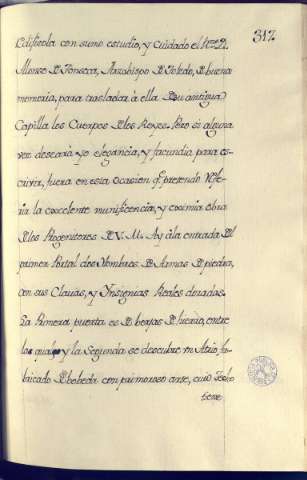 317
Edificola con sumo estudio, y Cuidado el Illmo D.
Alonso De Fonseca, Arzobispo De Toledo, De buena
memoria, para trasladar à ella De su antigua
Capilla los Cuerpos De los Reyes. Pero si alguna
vez deseara yo elegancia, y facundia para es-
crivir, fuera en esta Ocasion qe pretendo Refe-
rir la excelente munificencia, y eximia obra
De los Progenitores De V. M. Ay à la entrada Del
primer Portal dos Hombres De Armas De piedra,
con sus Clavas, y Insignias Reales doradas.
La Primera puerta es De berjas De hierro, entre
las quales y la Segunda se descubre un Atrio fa-
bricado De bobeda con primoroso arte, cuio Techo
tiene